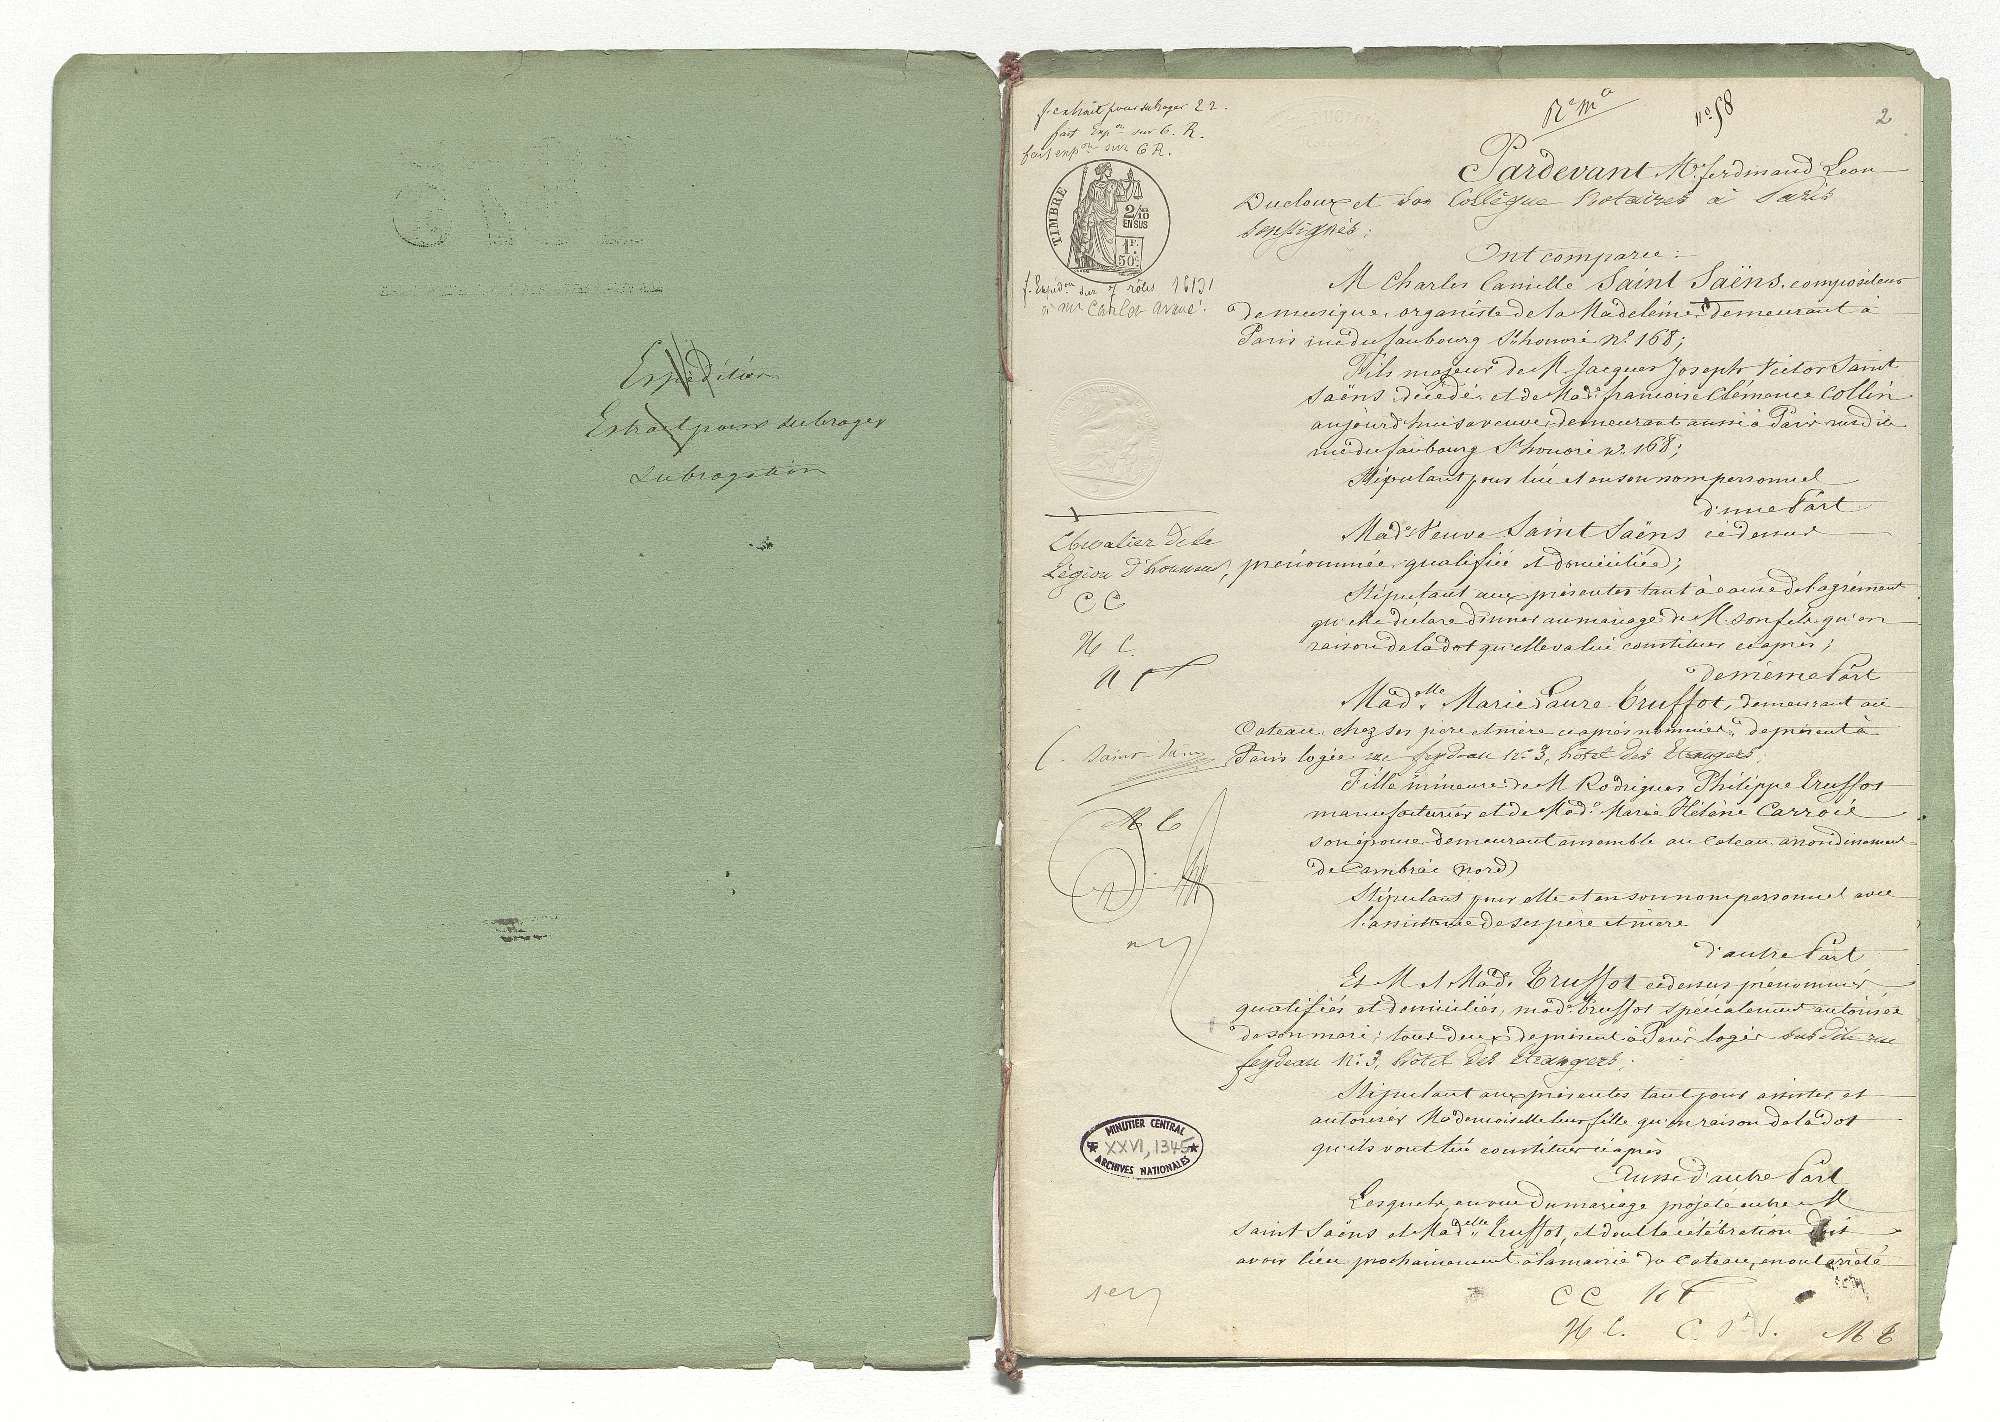 Expédition
Extrait pour subroger
subrogation
f. extrait pour subroger 22.
fait expon sur 6. R.
fait expon sur 6 R.
TIMBRE
2/10
EN SUS
1F.
50c.
f. Expédon sur 7 rôles
à me Carlet avoué.
no 58
2
Pardevant Me ferdinand Leon
Ducloux et son Collègue Notaires à Paris
soussignés;
Ont comparu:
M Charles Camille Saint Saëns, compositeur
de musique, organiste de la Madeleine, demeurant à
Paris rue du faubourg St honoré no 168;
Fils majeur de M Jacques Joseph Victor Saint
Saëns, décédé, et de Made françoise Clémence Collin
aujourd'hui sa veuve, demeurant aussi à Paris susdite
rue du faubourg St honoré no 168;
Stipulant pour lui et en son nom personnel
d'une Part
Made Veuve Saint Saëns ci dessus
prénommée, qualifiée et domiciliée;
Stipulant aux présentes tant à cause de l'agrément
qu'elle déclare donner au mariage de M. son fils qu'en
raison de la dot qu'elle va lui constituer ci après;
de même Part
Madelle Marie Laure Truffot, demeurant au
Cateau, chez ses père et mère ci après nommés, de présent à
Paris logée rue feydeau no 3, hôtel des Etrangers;
Fille mineure de M Rodrigues Philippe Truffot
manufacturier et de Made Marie Hélène Carroié
son épouse demeurant ensemble au Cateau arrondissement
de Cambrai (Nord)
Stipulant pour elle et en son nom personnel avec
l'assistance de ses père et mère
d'autre Part
Et M et Made Truffot ci dessus prénommés
qualifiés et domiciliés, made Truffot spécialement autorisée
de son mari; tous deux de présent à Paris logés susdite rue
feydeau no 3, hôtel des Etrangers;
Stipulant aux présentes tant pour assister et
autoriser Mademoiselle leur fille qu'en raison de la dot
qu'ils vont lui constituer ci après
Aussi d'autre Part
Lesquels, en vue du mariage projeté entre M
Saint Saëns et Madelle Truffot, et dont la célébration doit
avoir lieu prochainement à la mairie du Cateau, en ont arrêté
Chevalier de la
Légion d'honneur,
CC
H C.
C. Saint-Saëns
M C
MINUTIER CENTRAL
XXVI, 1345
ARCHIVES NATIONALES
CC
H C.
C. St S.
M T